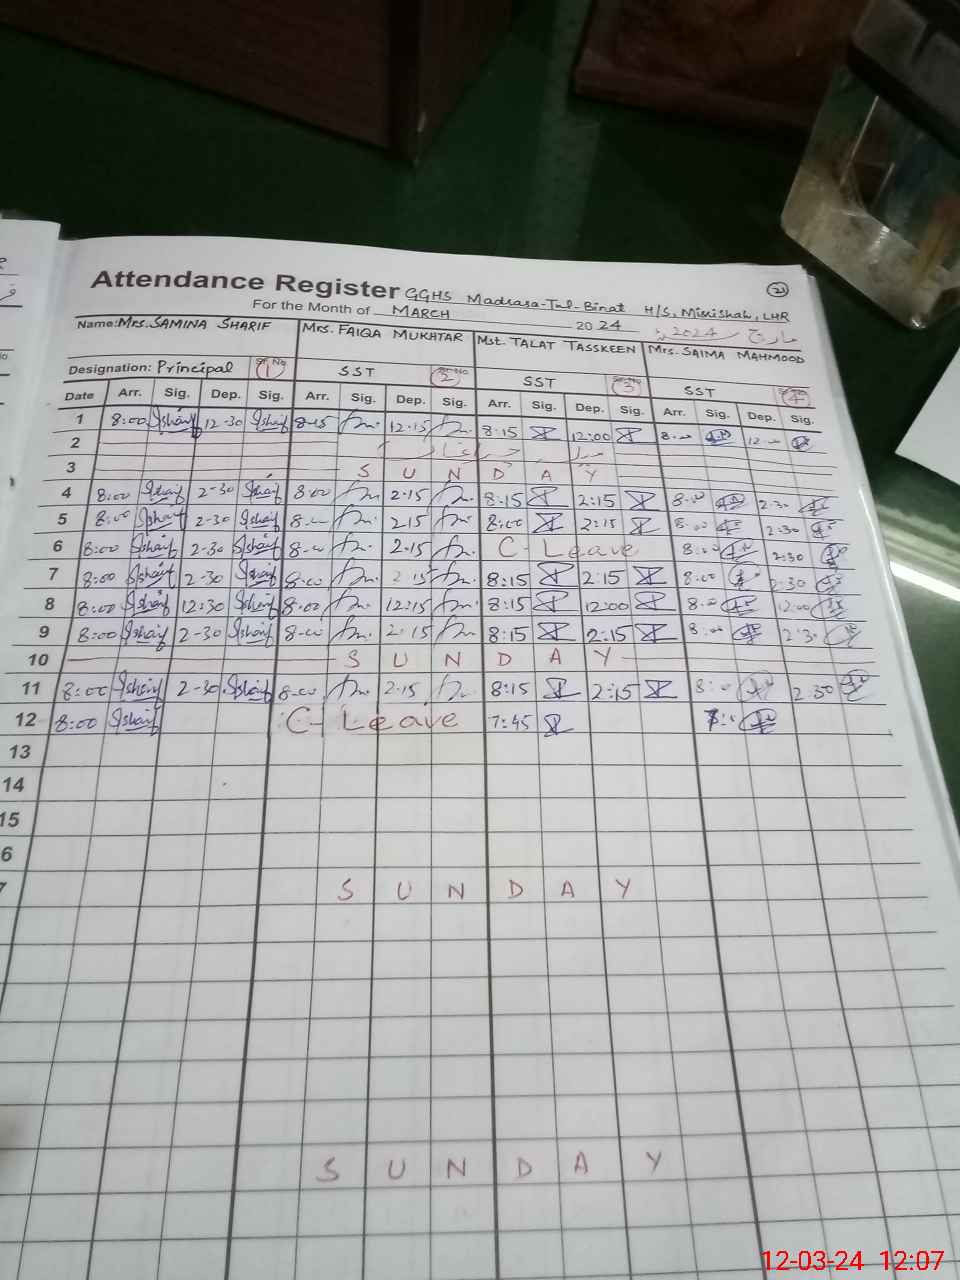 (21)
Attendance Register GGHS Madrasa-Tul-Binat H/S, Missishah, LHR
For the Month of MARCH 2024 مارچ 2024ء
Name: Mrs. SAMINA SHARIF Mrs. FAIQA MUKHTAR Mst. TALAT TASSKEEN Mrs. SAIMA MAHMOOD
Designation: Principal Sr. No 1 SST Sr. No 2 SST Sr. No 3 SST 4
Date Arr. Sig. Dep. Sig. Arr. Sig. Dep. Sig. Arr. Sig. Dep. Sig. Arr. Sig. Dep. Sig.
1 8:00 Ssharif 12-30 Ssharif 8-15 12.15 8:15 12:00 8:00 12:00
2
3 S U N D A Y
4 8:00 Ssharif 2-30 Ssharif 8:00 2.15 8:15 2:15 8:00 2:30
5 8:00 Ssharif 2-30 Ssharif 8:00 2.15 8:00 2:15 8:00 2:30
6 8:00 Ssharif 2-30 Ssharif 8:00 2.15 C-Leave 8:00 2:30
7 8:00 Ssharif 2-30 Ssharif 8:00 2.15 8:15 2:15 8:00 2:30
8 8:00 Ssharif 12:30 Ssharif 8:00 12:15 8:15 12:00 8:00 12:00
9 8:00 Ssharif 2-30 Ssharif 8:00 2:15 8:15 2:15 8:00 2:30
10 S U N D A Y
11 8:00 Ssharif 2-30 Ssharif 8:00 2.15 8:15 2:15 8:00 2:30
12 8:00 Ssharif C-Leave 7:45
13
14
15
6
7 S U N D A Y
S U N D A Y
12-03-24 12:07